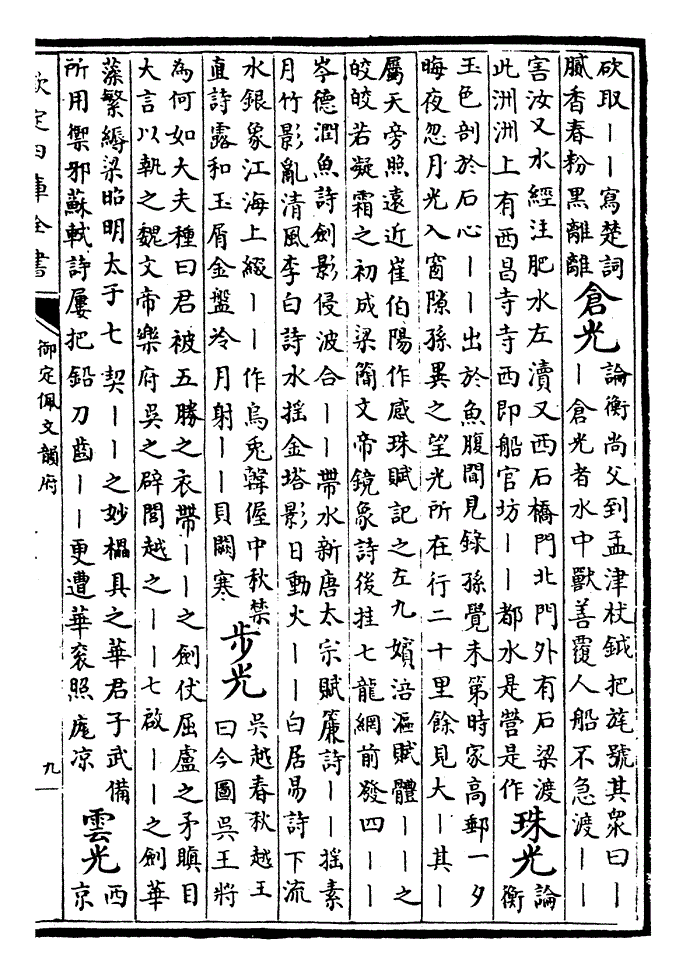 砍取——寫楚詞
膩香春粉黑離離
倉光
論衡尚父到孟津杖鉞把旄號其衆曰—
—倉光者水中獸善覆人船不急渡——
害汝又水經注肥水左瀆又西石橋門北門外有石梁渡
此洲洲上有西昌寺寺西即船官坊——都水是營是作
珠光
論
衡
玉色剖於石心——出於魚腹間見錄孫覺未第時家高郵一夕
晦夜忽月光入窗隙孫異之望光所在行二十里餘見大—其—
屬天旁照遠近崔伯陽作感珠賦記之左九嬪涪漚賦體——之
皎皎若凝霜之初成梁簡文帝鏡象詩後挂七龍網前發四——
岑德潤魚詩劍影侵波合——帶水新唐太宗賦簾詩——揺素
月竹影亂清風李白詩水揺金塔影日動火——白居易詩下流
水銀象江海上綴——作烏兔韓偓中秋禁
直詩露和玉屑金盤冷月射——貝闕寒
步光
吳越春秋越王
曰今圖吳王將
為何如大夫種曰君被五勝之衣帶——之劍仗屈盧之矛瞋目
大言以執之魏文帝樂府吳之辟閭越之——七啟——之劍華
藻繁縟梁昭明太子七契——之妙櫑具之華君子武備
所用禦邪蘇軾詩屢把鉛刀齒——更遭華衮照厖凉
雲光
西
京
欽定四庫全書
御定佩文韻府
九